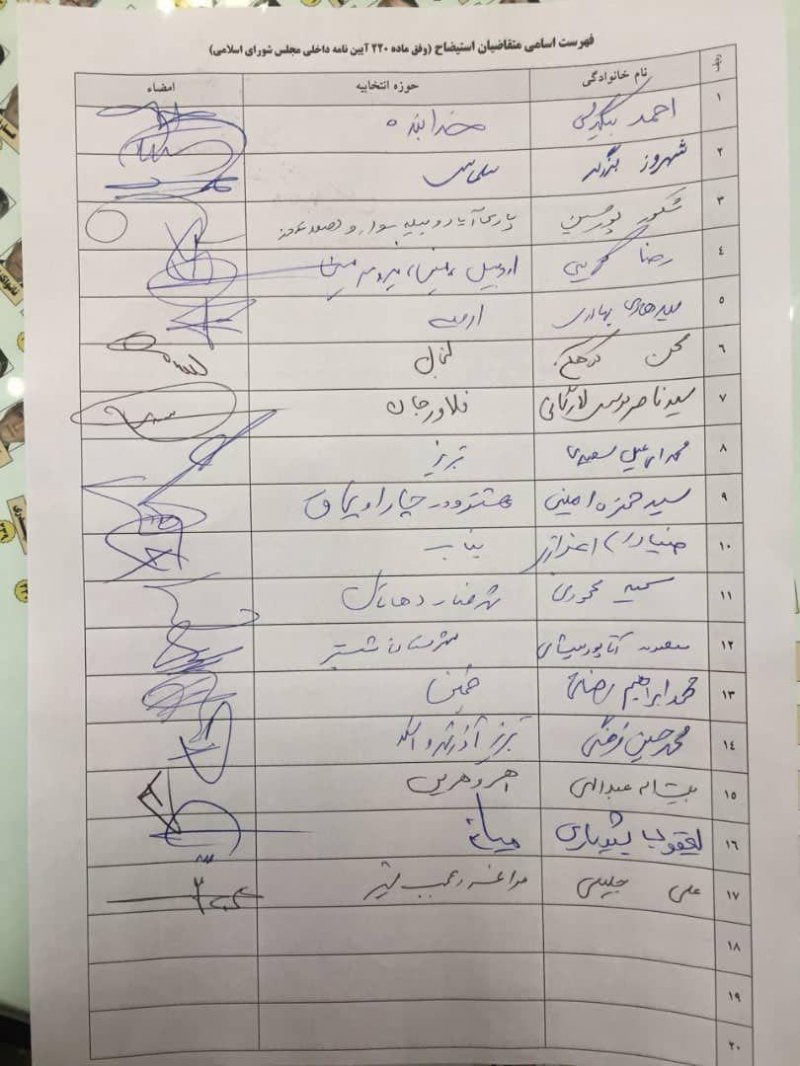 فهرست اسامی متقاضیان استیضاح (وفق ماده ۲۲۰ آیین نامه داخلی مجلس شورای اسلامی)
ردیف نام خانوادگی حوزه انتخابیه امضاء
۱ احمد بیگدلی خدابنده
۲ شهروز برزگر سلماس
۳ شکور پورحسین پارس آباد و بیله سوار و
۴ رضا کریمی اردبیل، نمین، نیر و سرعین
۵ بهادری ارومیه
۶
۷ سید ناصر موسوی لارگانی فلاورجان
۸ محمد اسماعیل سعیدی تبریز
۹ سید حمزه امینی هشترود و چاراویماق
۱۰ اعزازی بناب
۱۱ سمیه محمودی شهرضا و دهاقان
۱۲ شهرستان شبستر
۱۳ محمد ابراهیم رضائی خمین
۱۴ محمد حسین فرهنگی تبریز آذرشهر و اسکو
۱۵ بیت اله عبدالهی اهر و هریس
۱۶ یعقوب شیویاری میانه
۱۷ علی جلیلی مراغه و عجب شیر
۱۸
۱۹
۲۰